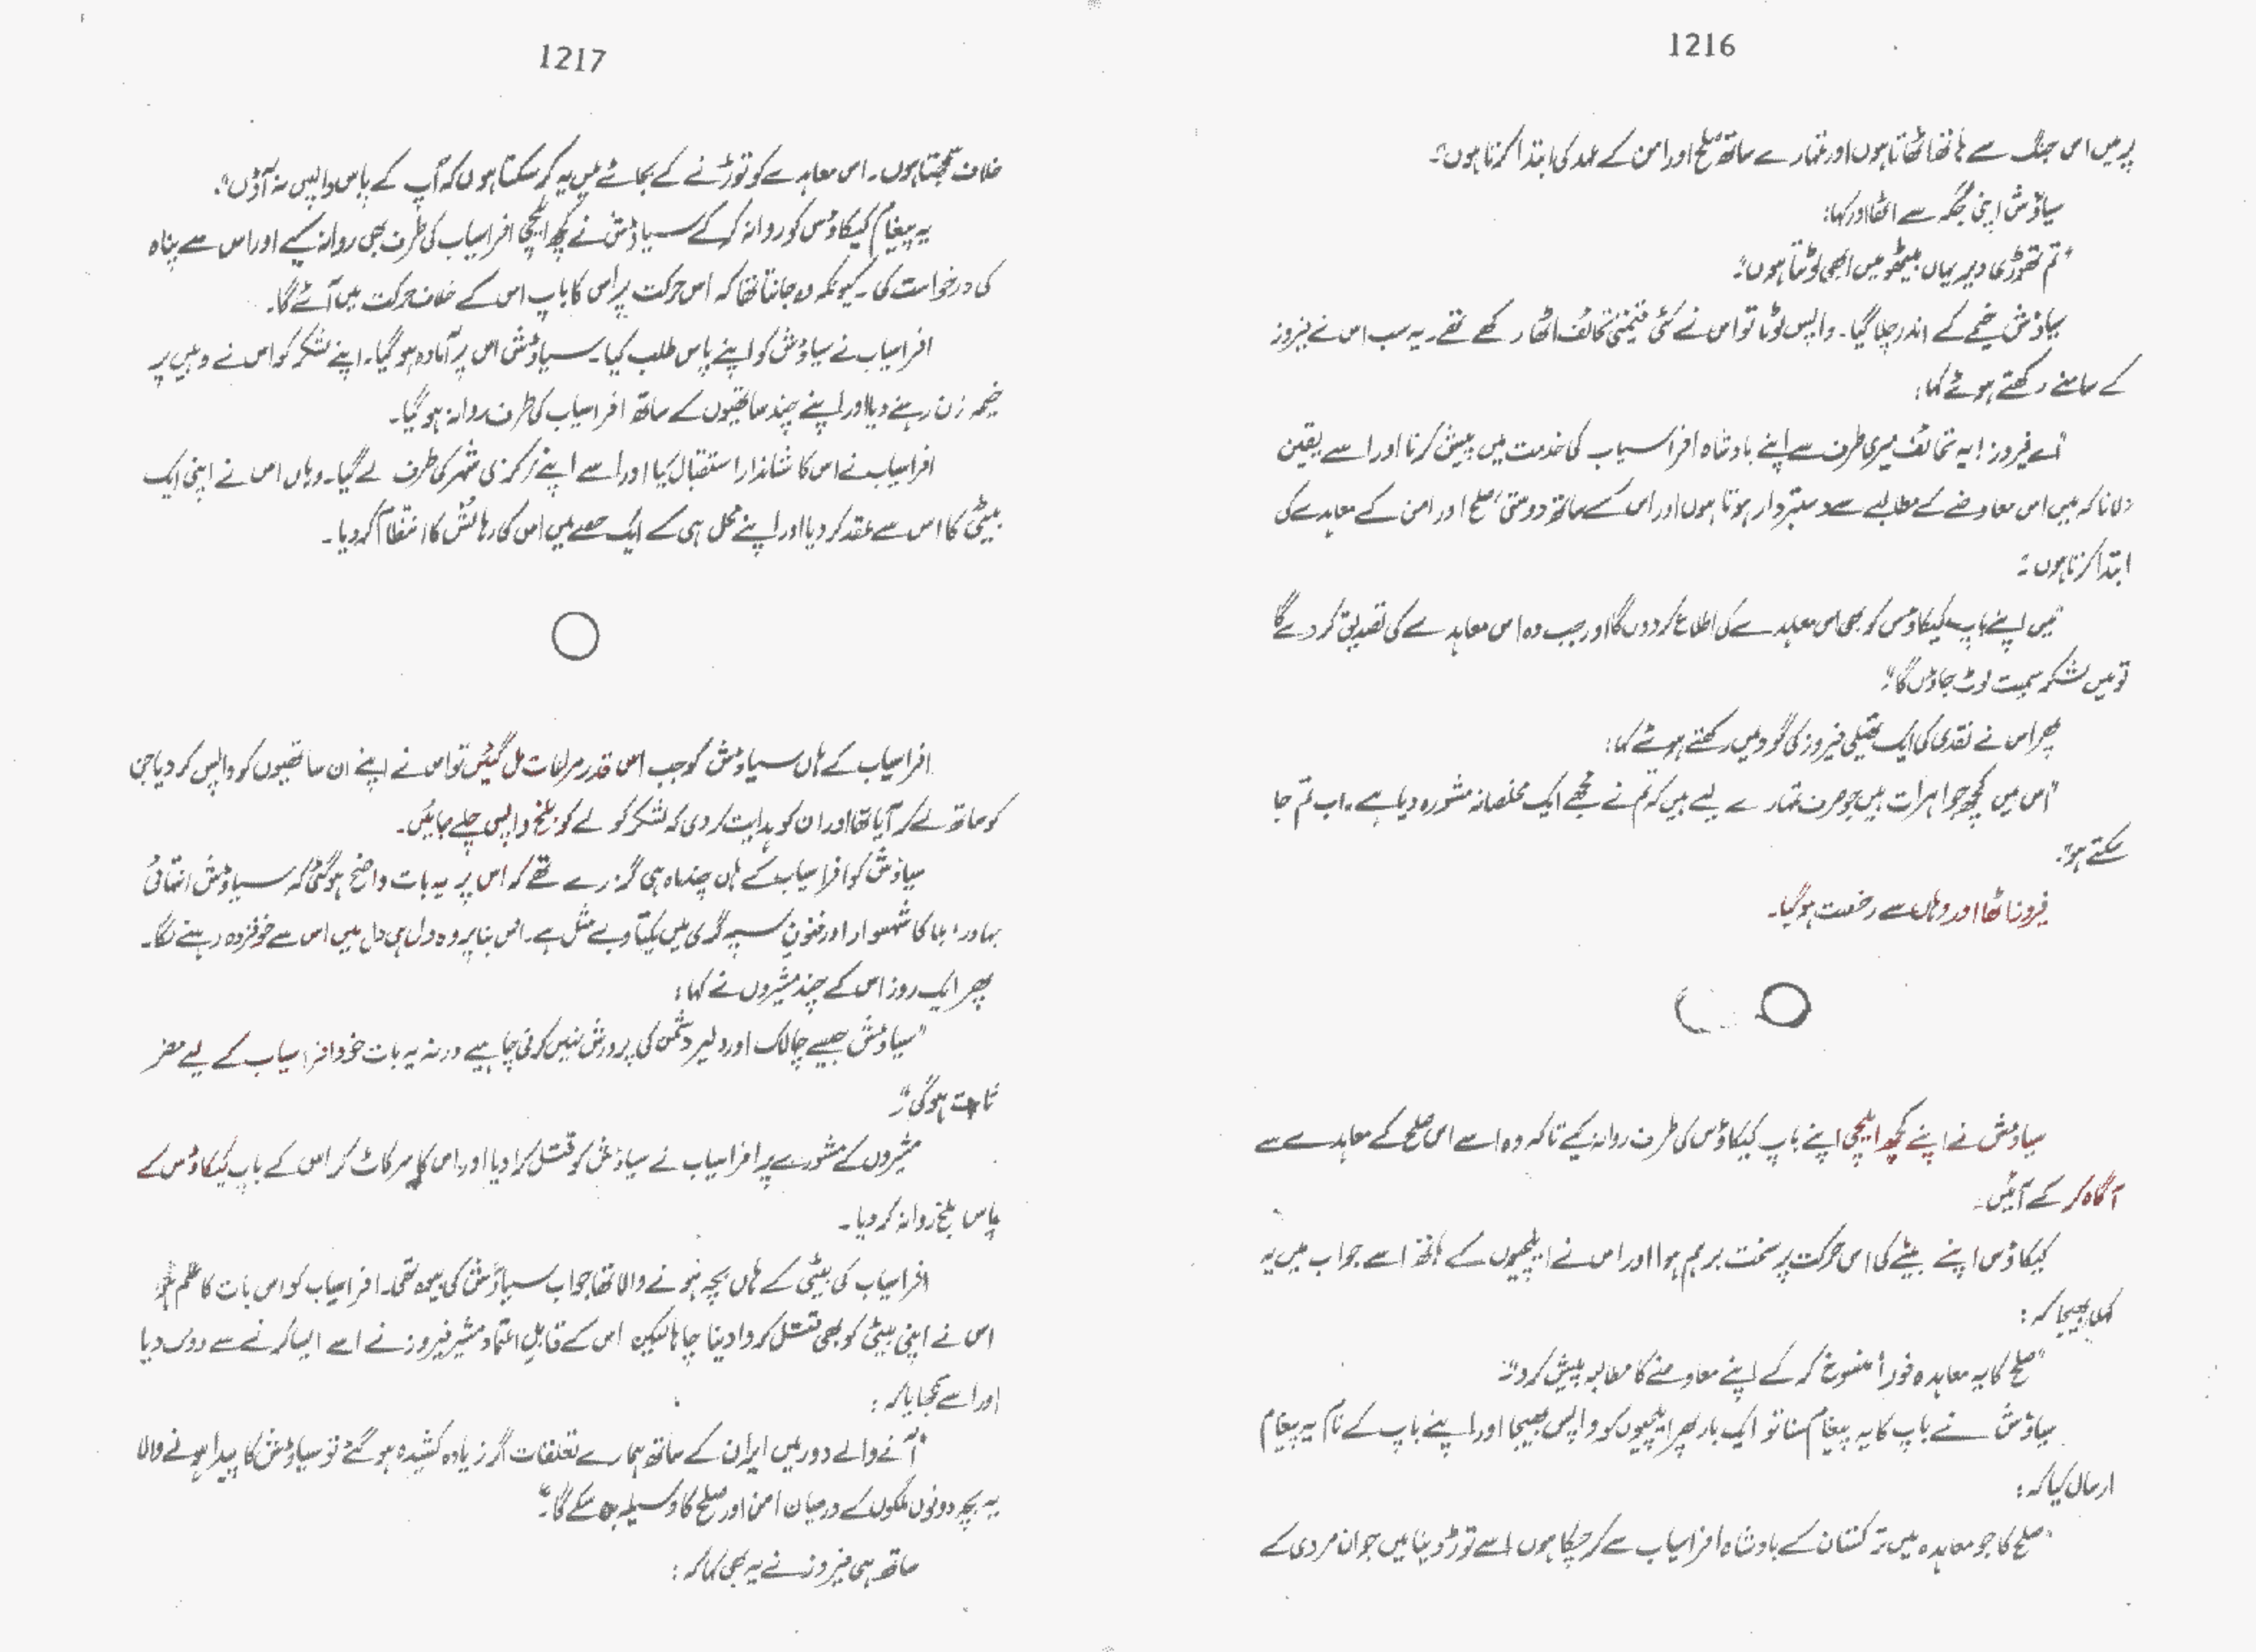 1216
پر میں اس جنگ سے ہاتھ اٹھاتا ہوں اور تمہارے ساتھ صلح اور امن کے عہد کی ابتدا کرتا ہوں"۔
سیاؤش اپنی جگہ سے اٹھا اور کہا:
"تم تھوڑی دیر یہاں بیٹھو میں ابھی لوٹتا ہوں"۔
سیاؤش خیمے کے اندر چلا گیا۔ واپس لوٹا تو اس نے کئی قیمتی تحائف اٹھا رکھے تھے۔ یہ سب اس نے فیروز
کے سامنے رکھتے ہوئے کہا:
"اے فیروز! یہ تحائف میری طرف سے اپنے بادشاہ افراسیاب کی خدمت میں پیش کرنا اور اسے یقین
دلانا کہ میں اس معاوضے کے مطالبے سے دستبردار ہوتا ہوں اور اس کے ساتھ دوستی، صلح اور امن کے معاہدے کی
ابتدا کرتا ہوں"۔
"میں اپنے باپ کیکاؤس کو بھی اس معاہدے کی اطلاع کر دوں گا اور جب وہ اس معاہدے کی تصدیق کر دے گا
تو میں لشکر سمیت لوٹ جاؤں گا"۔
پھر اس نے نقدی کی ایک تھیلی فیروز کی گود میں رکھتے ہوئے کہا:
"اس میں کچھ جواہرات ہیں جو صرف تمہارے لیے ہیں کہ تم نے مجھے ایک مخلصانہ مشورہ دیا ہے۔ اب تم جا
سکتے ہو"۔
فیروز اٹھا اور وہاں سے رخصت ہو گیا۔
سیاؤش نے اپنے کچھ ایلچی اپنے باپ کیکاؤس کی طرف روانہ کیے تاکہ وہ اسے اس صلح کے معاہدے سے
آگاہ کر کے آئیں۔
کیکاؤس اپنے بیٹے کی اس حرکت پر سخت برہم ہوا اور اس نے ایلچیوں کے ہاتھ اسے جواب میں یہ
کہلا بھیجا کہ:
"صلح کا یہ معاہدہ فوراً منسوخ کر کے اپنے معاوضے کا مطالبہ پیش کرو"۔
سیاؤش نے باپ کا یہ پیغام سنا تو ایک بار پھر ایلچیوں کو واپس بھیجا اور اپنے باپ کے نام یہ پیغام
ارسال کیا کہ:
"صلح کا جو معاہدہ میں ترکستان کے بادشاہ افراسیاب سے کر چکا ہوں اسے توڑ دینا میں جوان مردی کے
1217
خلاف سمجھتا ہوں۔ اس معاہدے کو توڑنے کے بجائے میں یہ کر سکتا ہوں کہ آپ کے پاس واپس نہ آؤں"۔
یہ پیغام کیکاؤس کو روانہ کر کے سیاؤش نے کچھ ایلچی افراسیاب کی طرف بھی روانہ کیے اور اس سے پناہ
کی درخواست کی۔ کیونکہ وہ جانتا تھا کہ اس حرکت پر اس کا باپ اس کے خلاف حرکت میں آئے گا۔
افراسیاب نے سیاؤش کو اپنے پاس طلب کیا۔ سیاؤش اس پر آمادہ ہو گیا۔ اپنے لشکر کو اس نے وہیں پر
خیمہ زن رہنے دیا اور اپنے چند ساتھیوں کے ساتھ افراسیاب کی طرف روانہ ہو گیا۔
افراسیاب نے اس کا شاندار استقبال کیا اور اسے اپنے مرکزی شہر کی طرف لے گیا۔ وہاں اس نے اپنی ایک
بیٹی کا اس سے عقد کر دیا اور اپنے محل ہی کے ایک حصے میں اس کی رہائش کا انتظام کر دیا۔
افراسیاب کے ہاں سیاؤش کو جب اس قدر مراعات مل گئیں تو اس نے اپنے ان ساتھیوں کو واپس کر دیا جن
کو ساتھ لے کر آیا تھا اور ان کو ہدایت کر دی کہ لشکر کو لے کر بلخ واپس چلے جائیں۔
سیاؤش کو افراسیاب کے ہاں چند ماہ ہی گزرے تھے کہ اس پر یہ بات واضح ہو گئی کہ سیاؤش انتہائی
بہادر، بلا کا شہسوار اور فنونِ سپہ گری میں یکتا و بے مثل ہے۔ اس بنا پر وہ دل ہی دل میں اس سے خوفزدہ رہنے لگا۔
پھر ایک روز اس کے چند مشیروں نے کہا:
"سیاؤش جیسے چالاک اور دلیر دشمن کی پرورش نہیں کرنی چاہیے ورنہ یہ بات خود افراسیاب کے لیے مضر
ثابت ہو گی"۔
مشیروں کے مشورے پر افراسیاب نے سیاؤش کو قتل کرا دیا اور اس کا سر کاٹ کر اس کے باپ کیکاؤس کے
پاس بلخ روانہ کر دیا۔
افراسیاب کی بیٹی کے ہاں بچہ ہونے والا تھا جو اب سیاؤش کی بیوہ تھی۔ افراسیاب کو اس بات کا علم ہوا
اس نے اپنی بیٹی کو بھی قتل کروا دینا چاہا لیکن اس کے قابلِ اعتماد مشیر فیروز نے اسے ایسا کرنے سے روک دیا
اور اسے سمجھایا کہ:
"آنے والے دور میں ایران کے ساتھ ہمارے تعلقات اگر زیادہ کشیدہ ہو گئے تو سیاؤش کا پیدا ہونے والا
یہ بچہ دونوں ملکوں کے درمیان امن اور صلح کا وسیلہ بن سکے گا"۔
ساتھ ہی فیروز نے یہ بھی کہا کہ: